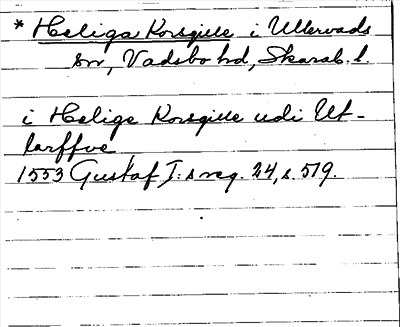 * Helige Korsgille i Ullervads
sn, Vadsbo hd, Skarab. l.
i Helige Korsgille udi Ul-
larffve
1553 Gustaf I:s reg. 24, s. 519.